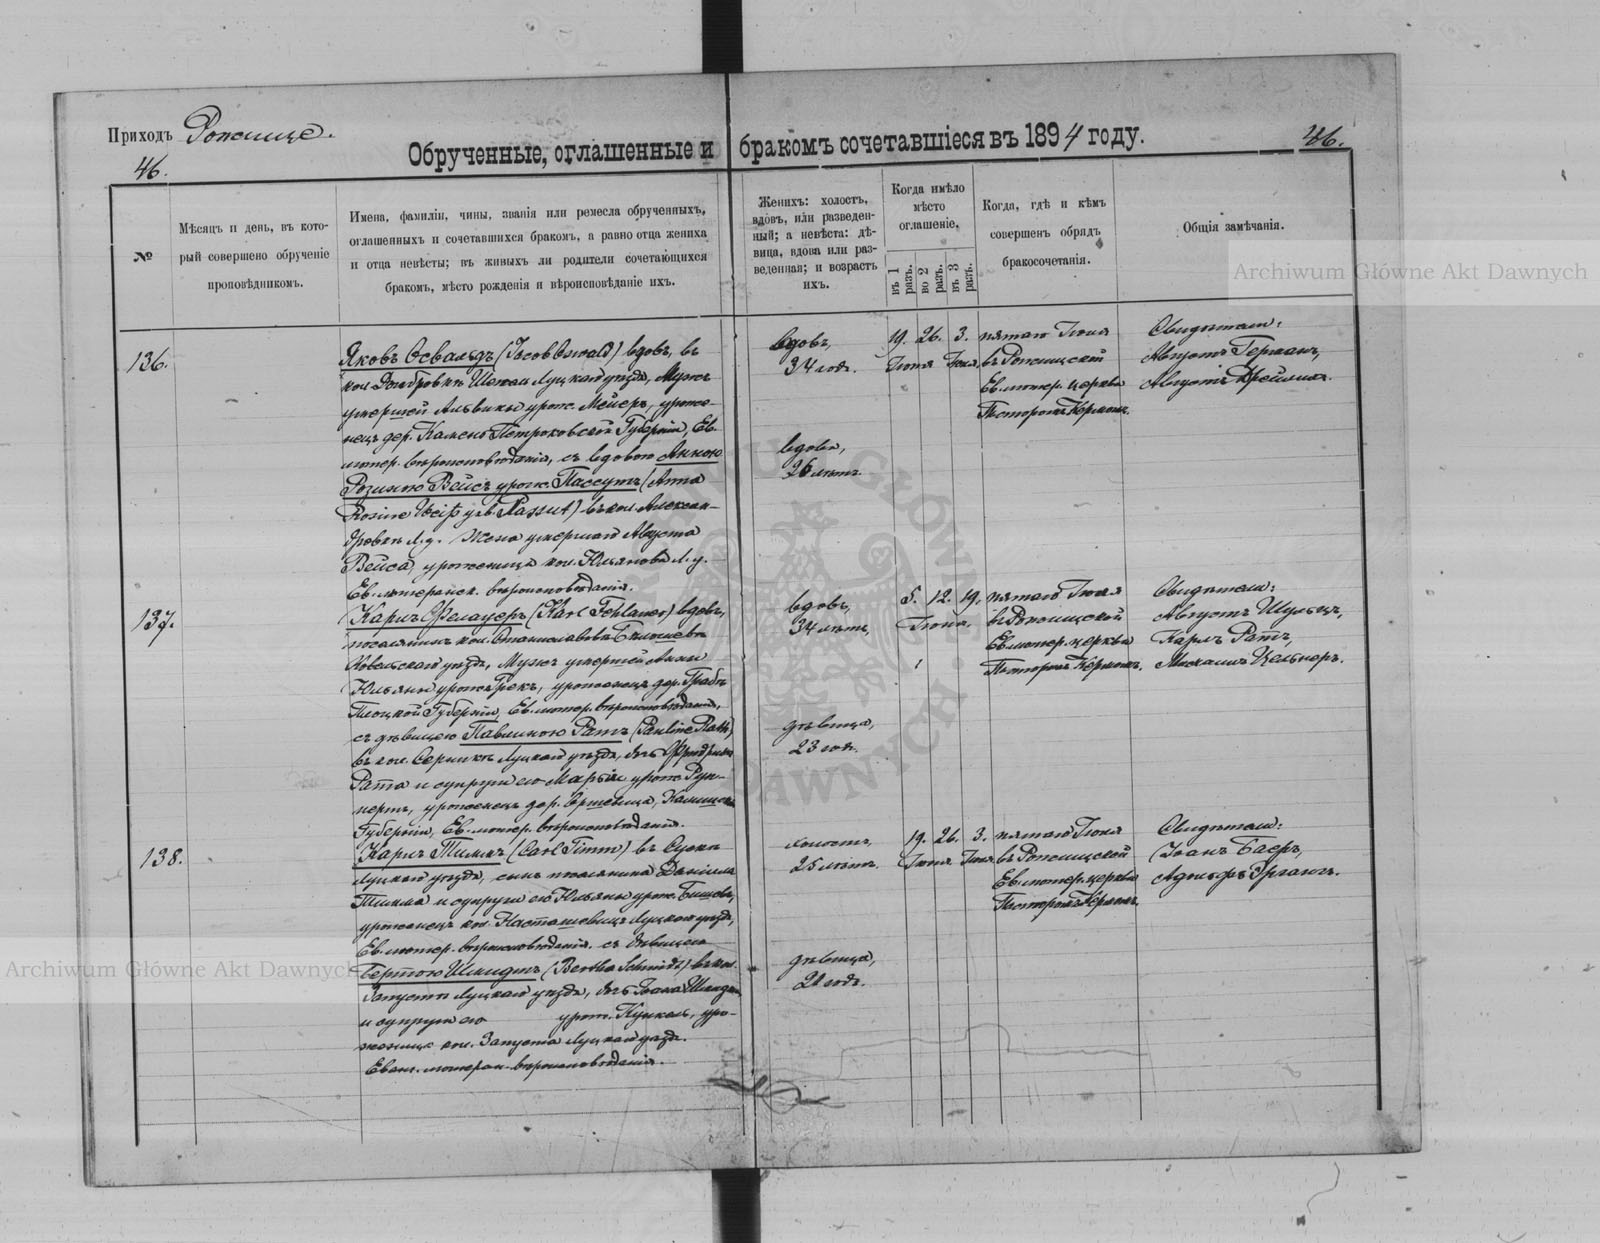 Приходъ Рожище.
46.
Обрученные, оглашенные и бракомъ сочетавшіеся въ 1894 году.
46.
№
Мѣсяцъ и день, въ кото-
рый совершено обрученіе
проповѣдникомъ.
Имена, фамиліи, чины, званія или ремесла обрученныхъ,
оглашенныхъ и сочетавшихся бракомъ, а равно отца жениха
и отца невѣсты; въ живыхъ ли родители сочетающихся
бракомъ, мѣсто рожденія и вѣроисповѣданіе ихъ.
Женихъ: холостъ,
вдовъ, или разведен-
ный; а невѣста: дѣ-
вица, вдова или раз-
веденная; и возрастъ
ихъ.
Когда имѣло
мѣсто
оглашеніе.
въ 1 разъ.
во 2 разъ.
въ 3 разъ.
Когда, гдѣ и кѣмъ
совершенъ обрядъ
бракосочетанія.
Общія замѣчанія.
Archiwum Główne Akt Dawnych
136.
Яковъ Освальдъ (Jacob Oswald) вдовъ, въ
кол. Луцкаго уѣзда, Мужъ
умершей Альвины урож. Мейеръ, уроже-
нецъ дер. Камень Петроковской Губерніи, Ев.
лютер. вѣроисповѣданія, съ вдовою Анною
Розиною Вейсъ урож. Пассутъ (Anna
Rosine Weiß geb. Passut) въ кол. Алексан-
дровкѣ Л. у. Жена умершаго Августа
Вейса, уроженица кол. Юльяновка Л. у.
Ев. лютеранск. вѣроисповѣданія.
вдовъ,
34 год.
вдова,
26 лѣтъ.
19. 26. 3.
Іюня Іюля
пятаго Іюля
въ Рожищской
Ев. лютер. церкви
Пасторомъ Керномъ.
Свидѣтели:
Августъ Германъ,
Августъ Крейлихъ.
137.
Карлъ Фелауеръ (Karl Fehlauer) вдовъ,
поселянинъ кол. Станиславовка
Ковельскаго уѣзда, Мужъ умершей Анны
Юльяны урож. Грекъ, уроженецъ дер. Грабъ
Плоцкой Губерніи, Ев. лютер. вѣроисповѣданія,
съ дѣвицею Павлиною Ратъ (Pauline Rath)
въ кол. Серникъ Луцкаго уѣзда, дочь Фридриха
Рата и супруги его Маріи урож.
уроженецъ дер. Калишской
Губерніи, Ев. лютер. вѣроисповѣданія.
вдовъ,
34 лѣтъ,
дѣвица,
23 год.
5. 12. 19.
Іюня.
пятаго Іюля
въ Рожищской
Ев. лютер. церкви
Пасторомъ Керномъ.
Свидѣтели:
Августъ Шульцъ,
Карлъ Ратъ,
Михаилъ Цельнеръ.
138.
Карлъ Тиммъ (Carl Timm) въ
Луцкаго уѣзда, сынъ поселянина Даніила
Тимма и супруги его Юльяны урож.
уроженецъ кол. Луцкаго уѣзда,
Ев. лютер. вѣроисповѣданія. съ дѣвицею
Бертою Шмидтъ (Bertha Schmidt) въ кол.
Запустъ Луцкаго уѣзда, дочь Іоана Шмидта
и супруги его урож. Кункель, уро-
женица кол. Запуста Луцкаго уѣзда.
Еванг. лютеран. вѣроисповѣданія.
холостъ,
25 лѣтъ.
дѣвица,
21 годъ.
19. 26. 3.
Іюня Іюля
пятаго Іюля
въ Рожищской
Ев. лютер. церкви
Пасторомъ Керномъ.
Свидѣтели:
Іоанъ Баеръ,
Адольфъ
Archiwum Główne Akt Dawnych